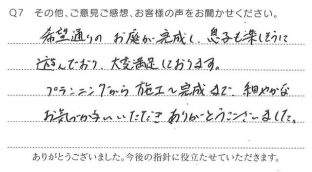 Q7 その他、ご意見ご感想、お客様の声をお聞かせください。
希望通りの お庭が完成し、息子も楽しそうに
遊んでおり、大変満足しております。
プランニングから 施工〜完成まで、細やかな
お気づかいいただき ありがとうございました。
ありがとうございました。今後の指針に役立たせていただきます。